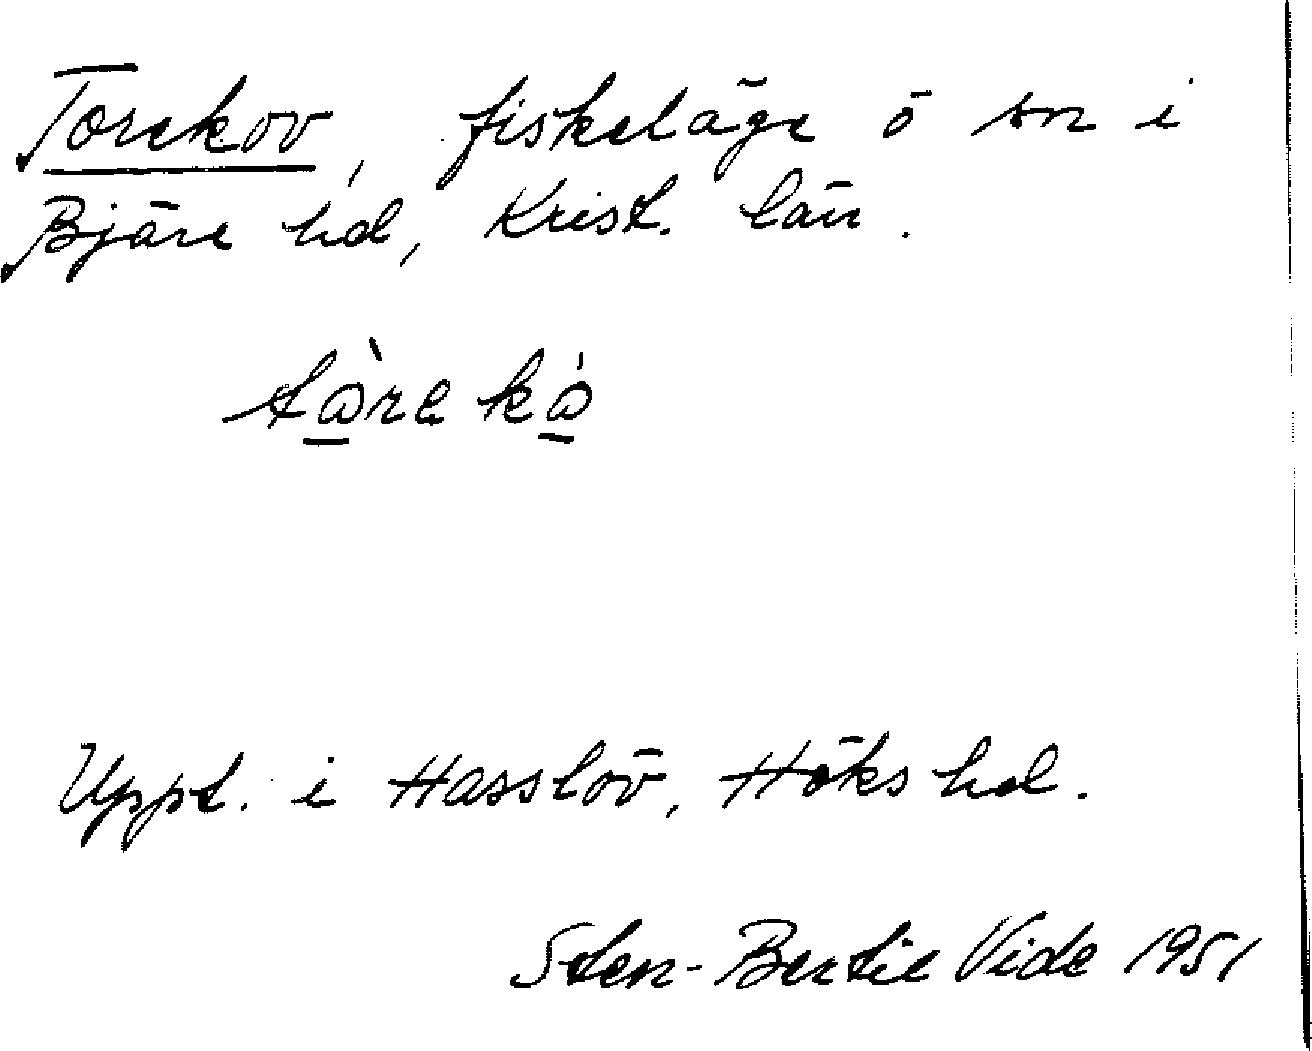 Torekov, fiskeläge o sn i
Bjäre hd, Krist. län.
tå̀rekå̍
Uppt. i Hasslöv, Höks hd.
Sten-Bertil Vide 1951